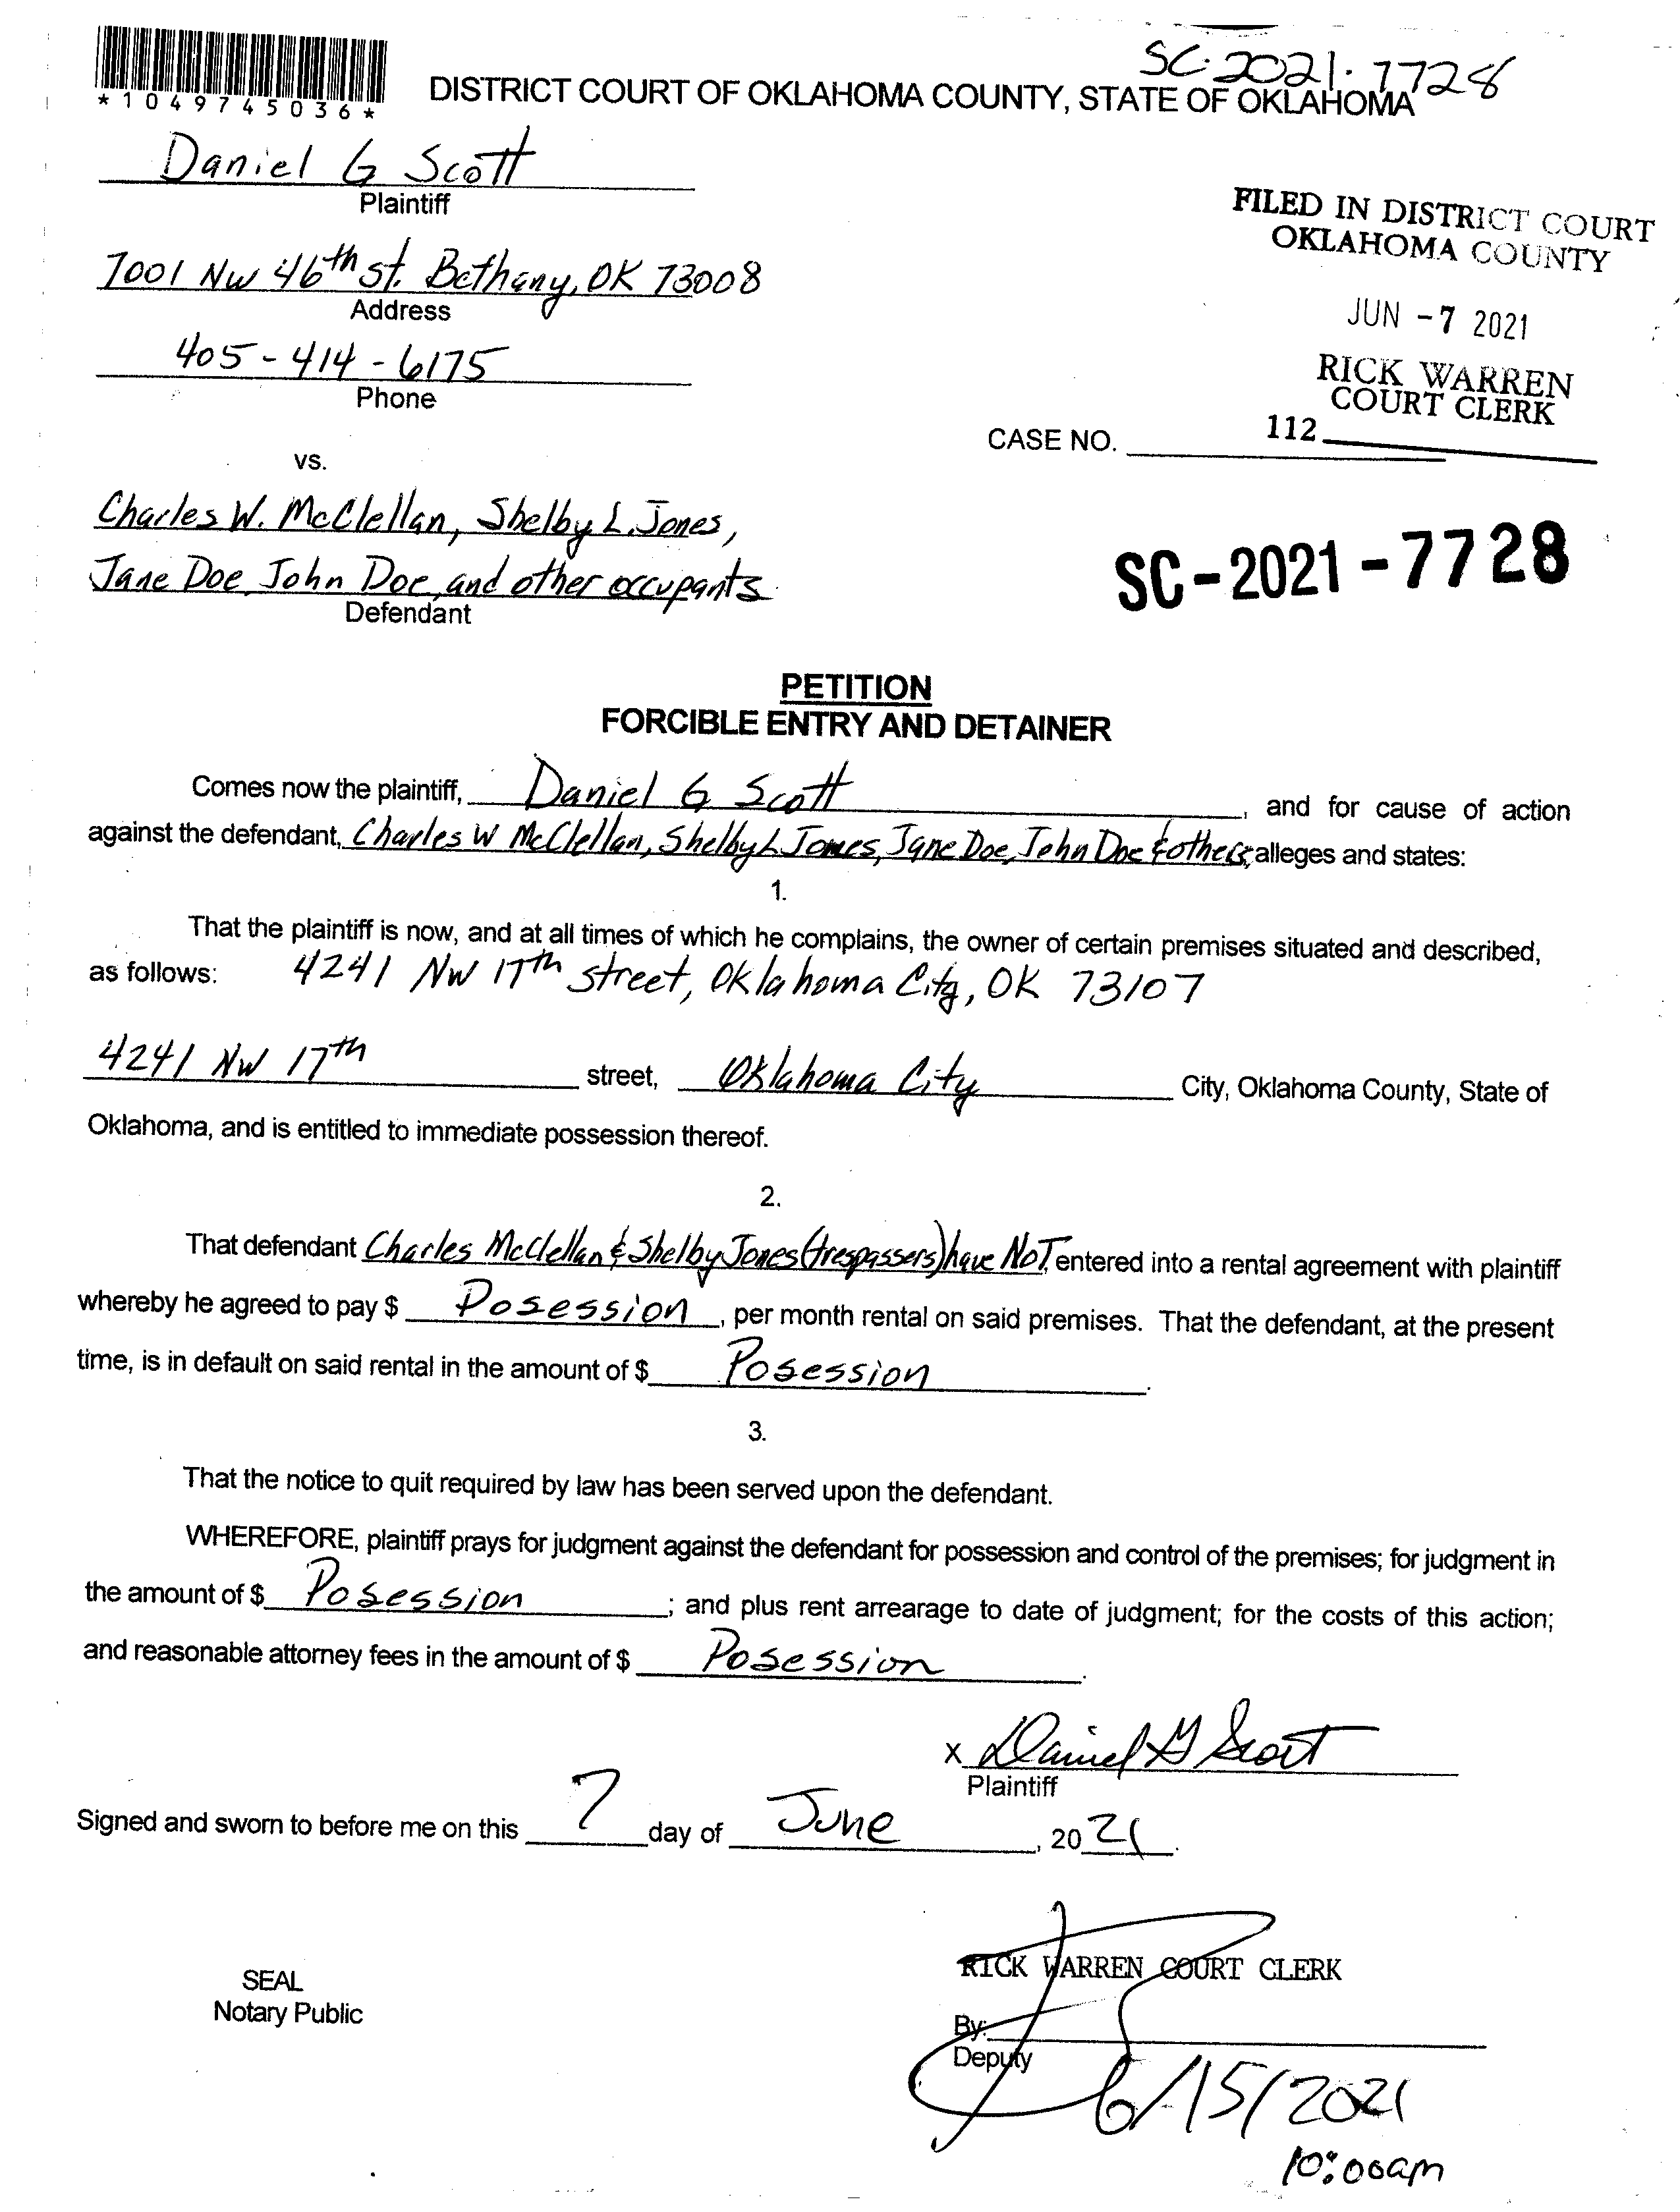 SC-2021-7728
*1049745036*
DISTRICT COURT OF OKLAHOMA COUNTY, STATE OF OKLAHOMA
Daniel G Scott
Plaintiff
7001 NW 46th st. Bethany, OK 73008
Address
405-414-6175
Phone
FILED IN DISTRICT COURT
OKLAHOMA COUNTY
JUN -7 2021
RICK WARREN
COURT CLERK
CASE NO. 112
vs.
Charles W. McClellan, Shelby L. Jones,
Jane Doe, John Doe, and other occupants
Defendant
SC-2021-7728
PETITION
FORCIBLE ENTRY AND DETAINER
Comes now the plaintiff, Daniel G Scott, and for cause of action
against the defendant, Charles W McClellan, Shelby L Jones, Jane Doe, John Doe & others, alleges and states:
1.
That the plaintiff is now, and at all times of which he complains, the owner of certain premises situated and described,
as follows: 4241 NW 17th street, Oklahoma City, OK 73107
4241 NW 17th street, Oklahoma City City, Oklahoma County, State of
Oklahoma, and is entitled to immediate possession thereof.
2.
That defendant Charles McClellan & Shelby Jones (trespassers) have NOT entered into a rental agreement with plaintiff
whereby he agreed to pay $ Posession, per month rental on said premises. That the defendant, at the present
time, is in default on said rental in the amount of $ Posession.
3.
That the notice to quit required by law has been served upon the defendant.
WHEREFORE, plaintiff prays for judgment against the defendant for possession and control of the premises; for judgment in
the amount of $ Posession; and plus rent arrearage to date of judgment; for the costs of this action;
and reasonable attorney fees in the amount of $ Posession.
x Daniel G Scott
Plaintiff
Signed and sworn to before me on this 7 day of June, 2021.
SEAL
Notary Public
RICK WARREN COURT CLERK
By:
Deputy
6/15/2021
10:00am